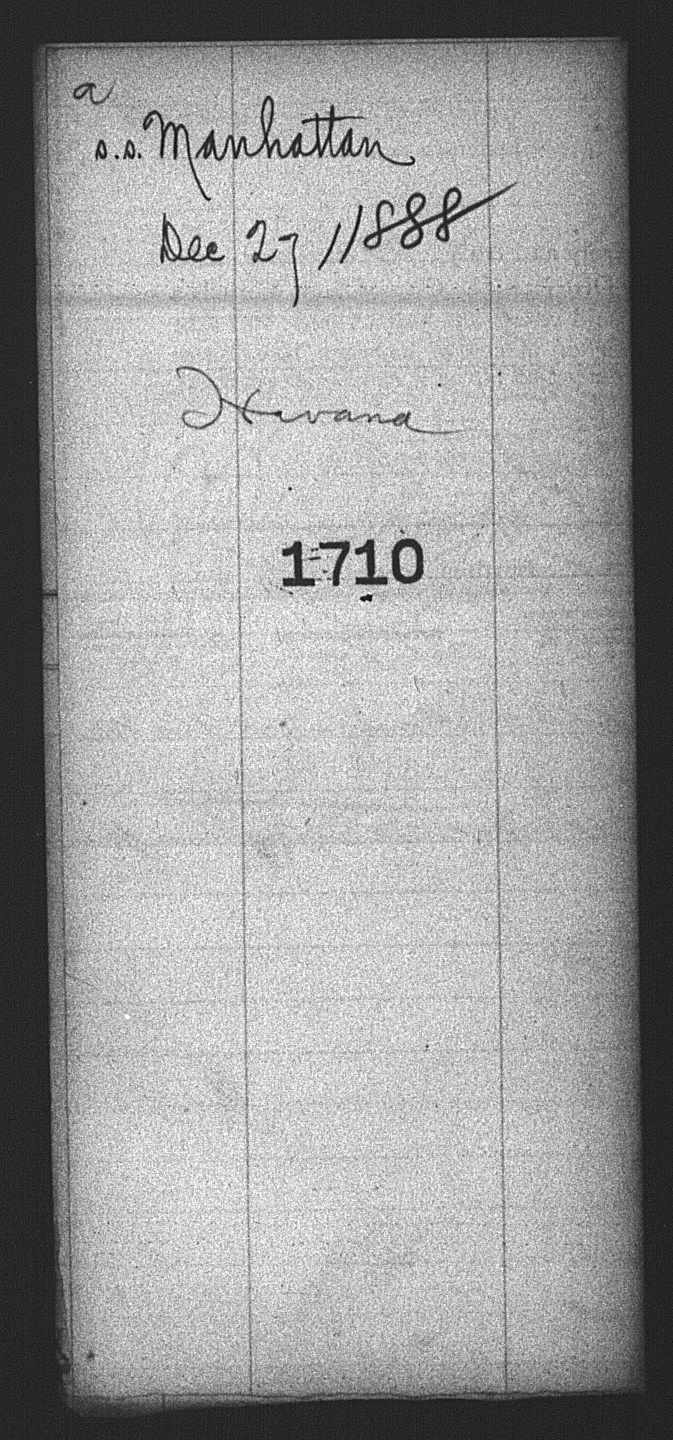 a
s.s. Manhattan
Dec 27 / 1888
Havana
1710